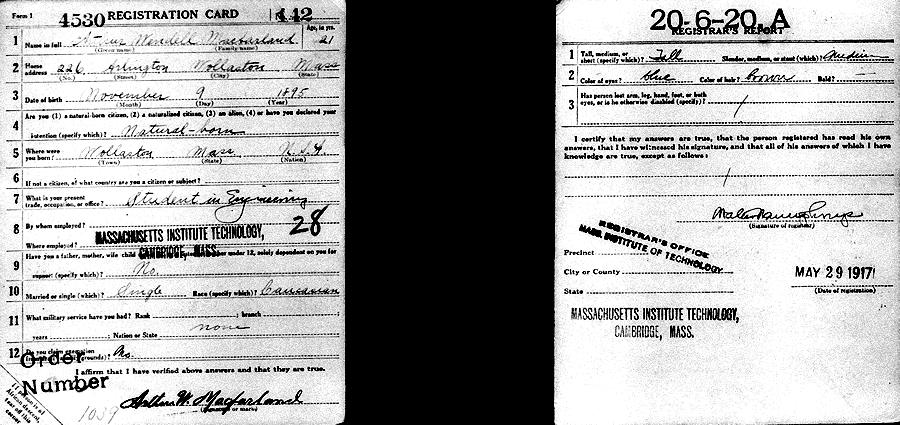 Form 1 4530 REGISTRATION CARD No. 142
1 Name in full Arthur Wendell Macfarland Age, in yrs. 21
(Given name) (Family name)
2 Home address 226 Arlington Wollaston Mass
(No.) (Street) (City) (State)
3 Date of birth November 9 1895
(Month) (Day) (Year)
4 Are you (1) a natural-born citizen, (2) a naturalized citizen, (3) an alien, (4) or have you declared your
intention (specify which)? Natural-born
5 Where were you born? Wollaston Mass U.S.A.
(Town) (State) (Nation)
6 If not a citizen, of what country are you a citizen or subject?
7 What is your present trade, occupation, or office? Student in Engineering
28
8 By whom employed? MASSACHUSETTS INSTITUTE TECHNOLOGY,
Where employed? CAMBRIDGE, MASS.
9 Have you a father, mother, wife, child under 12, solely dependent on you for
support (specify which)? No.
10 Married or single (which)? Single Race (specify which)? Caucasian
11 What military service have you had? Rank ; branch
years ; Nation or State none
12 Do you claim exemption
grounds)? No.
Order
Number
I affirm that I have verified above answers and that they are true.
1039
Arthur W. Macfarland
(Signature or mark)
If person is of
African descent,
tear off this
corner
20-6-20. A
REGISTRAR'S REPORT
1 Tall, medium, or short (specify which)? Tall Slender, medium, or stout (which)? Medium
2 Color of eyes? blue Color of hair? Brown Bald? —
3 Has person lost arm, leg, hand, foot, or both
eyes, or is he otherwise disabled (specify)?
I certify that my answers are true, that the person registered has read his own
answers, that I have witnessed his signature, and that all of his answers of which I
have knowledge are true, except as follows:
Walter Humphreys
(Signature of registrar)
REGISTRAR'S OFFICE
MASS. INSTITUTE OF TECHNOLOGY
Precinct
City or County
State
MAY 29 1917
(Date of registration)
MASSACHUSETTS INSTITUTE TECHNOLOGY,
CAMBRIDGE, MASS.